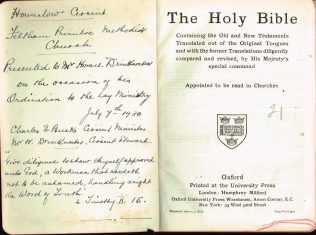 Hounslow Circuit
Feltham Primitive Methodist
Church
Presented to Mr Horace Drinkwater
on the occasion of his
Ordination to the Lay Ministry
July 9th 1930
Charles E Circuit Minister
Mr W. Drinkwater, Circuit Steward
"Give diligence to shew thyself approved
unto God, a Workman that needeth
not to be ashamed, handling aright
the Word of Truth"
2 Timothy II 15-
The Holy Bible
Containing the Old and New Testaments
Translated out of the Original Tongues
and with the former Translations diligently
compared and revised, by His Majesty's
special command
Appointed to be read in Churches
21
Oxford
Printed at the University Press
London: Humphrey Milford
Oxford University Press Warehouse, Amen Corner, E.C.
New York: 35 West 32nd Street